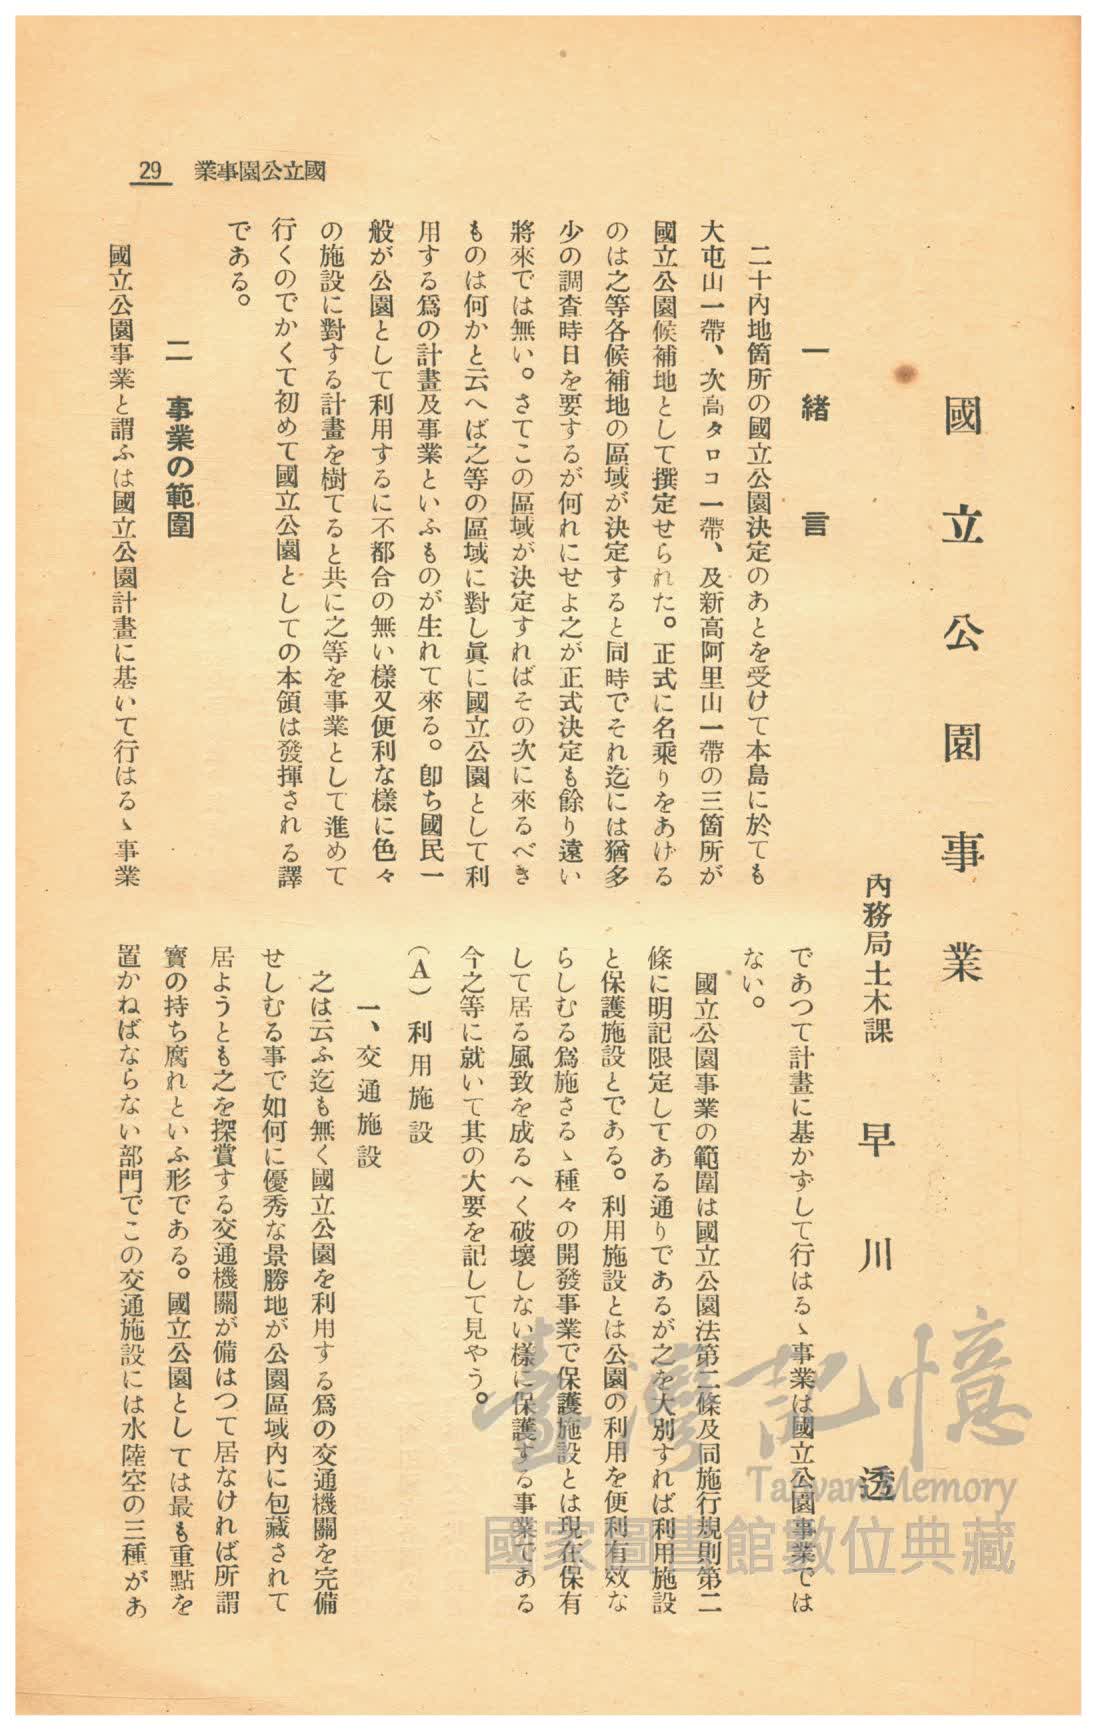 業事園公立國 29
國立公園事業
內務局土木課 早川 透
一 緒言
二十內地箇所の國立公園決定のあとを受けて本島に於ても
大屯山一帶、次高タロコ一帶、及新高阿里山一帶の三箇所が
國立公園候補地として撰定せられた。正式に名乘りをあげる
のは之等各候補地の區域が決定すると同時でそれ迄には猶多
少の調査時日を要するが何れにせよ之が正式決定も餘り遠い
將來では無い。さてこの區域が決定すればその次に來るべき
ものは何かと云へば之等の區域に對し眞に國立公園として利
用する爲の計畫及事業といふものが生れて來る。卽ち國民一
般が公園として利用するに不都合の無い樣又便利な樣に色々
の施設に對する計畫を樹てると共に之等を事業として進めて
行くのでかくて初めて國立公園としての本領は發揮される譯
である。
二 事業の範圍
國立公園事業と謂ふは國立公園計畫に基いて行はるゝ事業
であつて計畫に基かずして行はるゝ事業は國立公園事業では
ない。
國立公園事業の範圍は國立公園法第二條及同施行規則第二
條に明記限定してある通りであるが之を大別すれば利用施設
と保護施設とである。利用施設とは公園の利用を便利有效な
らしむる爲施さるゝ種々の開發事業で保護施設とは現在保有
して居る風致を成るへく破壞しない樣に保護する事業である
今之等に就いて其の大要を記して見やう。
(A) 利用施設
一、交通施設
之は云ふ迄も無く國立公園を利用する爲の交通機關を完備
せしむる事で如何に優秀な景勝地が公園區域內に包藏されて
居ようとも之を探賞する交通機關が備はつて居なければ所謂
寶の持ち腐れといふ形である。國立公園としては最も重點を
置かねばならない部門でこの交通施設には水陸空の三種があ
臺灣記憶
Taiwan Memory
國家圖書館數位典藏